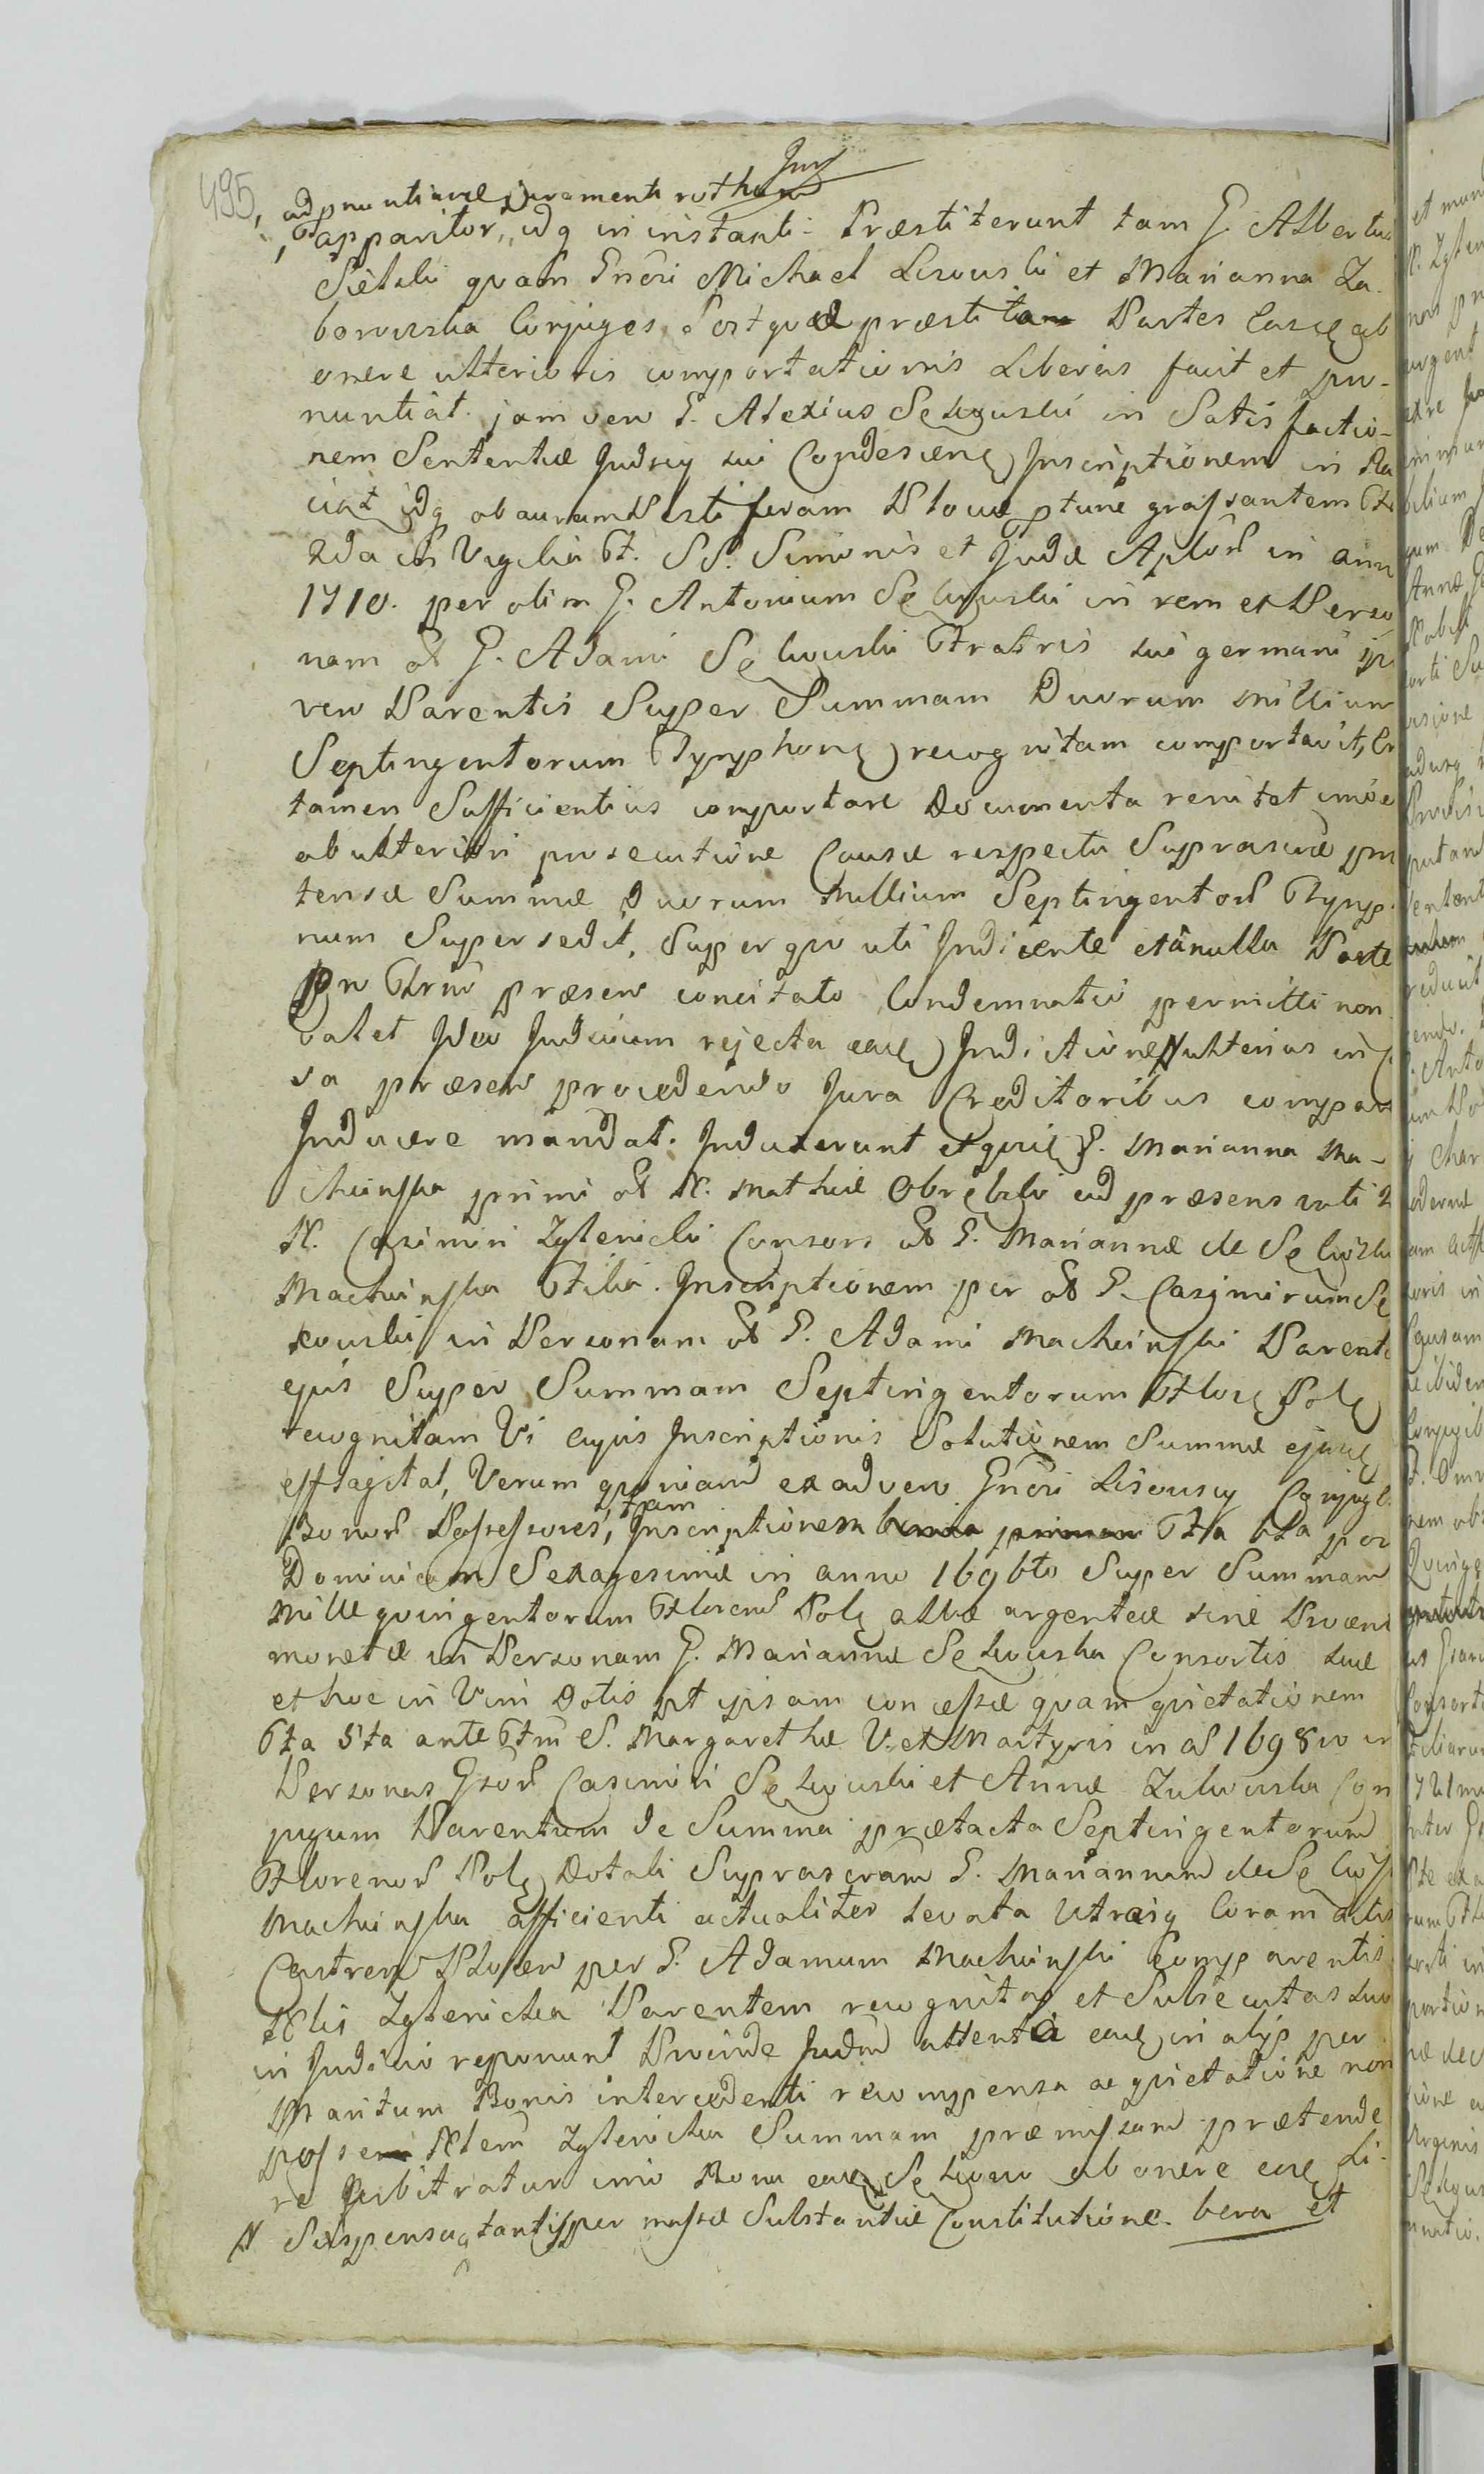 495
Jur
ad pnuntiare juramenti rotham
apparitor, idq in instanti Præstiterunt tam G. Albertus
Sielski quam Gnêri Michael Lisowski et Marianna Za-
borowska Conjuges Post quæ præstita Partes Casus ab
onere ulterioris comportationis Liberas facit et pro-
nuntiat. jam vero G. Alexius Sękowski in Satisfactio-
nem Sententiæ Judicij sui Condescens Inscriptionem in Ra
ciąż idq ob auram Pestiferam Plociæ ptunc grassantem Fr
2da in Vigilia F. SS. Simonis et Judæ Aplor in ann
1710. per olim G. Antonium Sękowski in rem et Perso
nam ol G. Adami Sękowski Fratris sui germani
vero Parentis Super Summam Duorum millium
Septingentorum Tynphonę recognitam comportavit,
tamen Sufficientius comportare Documenta renitet imo e
ab ulteriori prosecutione Causæ respectu Suprascræ præ
tensæ Summæ Duorum Millium Septingentor Tynp.
num Supersedit, Super quo uti Indicente et a nulla Parte
pro Trno præsen concitato Condemnatio permitti non
valet Ideo Judicium rejecta eaę Indictione N ulterius in C
sa præsen procedendo Jura Creditoribus compar
Inducere mandat. Induxerunt et quię G. Marianna Ma-
chcinska primi ol N. Mathiæ Obrębski ad præsens voti 2
N. Casimiri Zglenicki Consors ol G. Mariannæ de Sękowsk
Machcinska Filia. Inscriptionem per ol G. Casimirum Sę
kowski in Personam ol G. Adami Machcinski Parent
ejus Super Summam Septingentorum Flor Polę
recognitam Vi cujus Inscriptionis Solutionem Summæ ejus
efflagitat, Verum quoniam ex adverso Gnêri Lisowscy Conjug
Bonor Possessores, tam Inscriptionem Fta 6ta po
Dominicam Sexagesimæ in anno 1696to Super Summam
mille quingentorum Floren Polę albæ argenteæ sine Proven
monetæ in Personam G. Mariannæ Sękowska Consortis suæ
et hoc in Vim Dotis pt ipsam concessæ quam quietationem
Fta 5ta ante Ftm S. Margarethæ V. et Martyris in ao 1698vo in
Personas Gsor Casimiri Sękowski et Annæ Zukowska Con
jugum Parentum de Summa prætacta Septingentorum
Florenor Polę Dotali Suprascram G. Mariannam de Sękow
Machcinska afficienti actualiter levata Utraiq Coram actis
Castren Plocen per G. Adamum Machcinski Comparentis
Nlis Zglenicka Parentem recognitas et Subsecutas suo
in Judicio reponunt Proinde Judm attenta eaę in alijs per
Maritum Bonis intercedenti recompensa ac quietatione non
posse Nlem Zglenicka Summam præmissam prætende
re Arbitratur imo Bona eaę Sękowo ab onere eaę Li-
N Suspensa tantisper massæ Substantiæ Constitutione. bera et